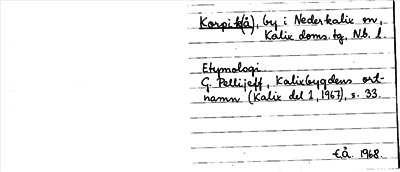 Korpikå), by i Nederkalix sn,
Kalix doms.tg, Nb. l.
Etymologi
G. Pellijeff, Kalixbygdens ort-
namn (Kalix del 1, 1967), s. 33.
Eå. 1968.